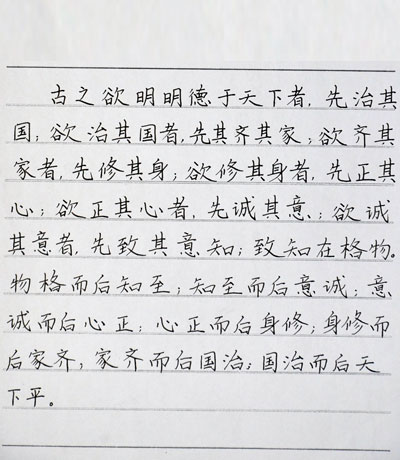 古之欲明明德于天下者,先治其
国;欲治其国者,先其齐其家;欲齐其
家者,先修其身;欲修其身者,先正其
心;欲正其心者,先诚其意;欲诚
其意者,先致其意知;致知在格物。
物格而后知至;知至而后意诚;意
诚而后心正;心正而后身修;身修而
后家齐;家齐而后国治;国治而后天
下平。